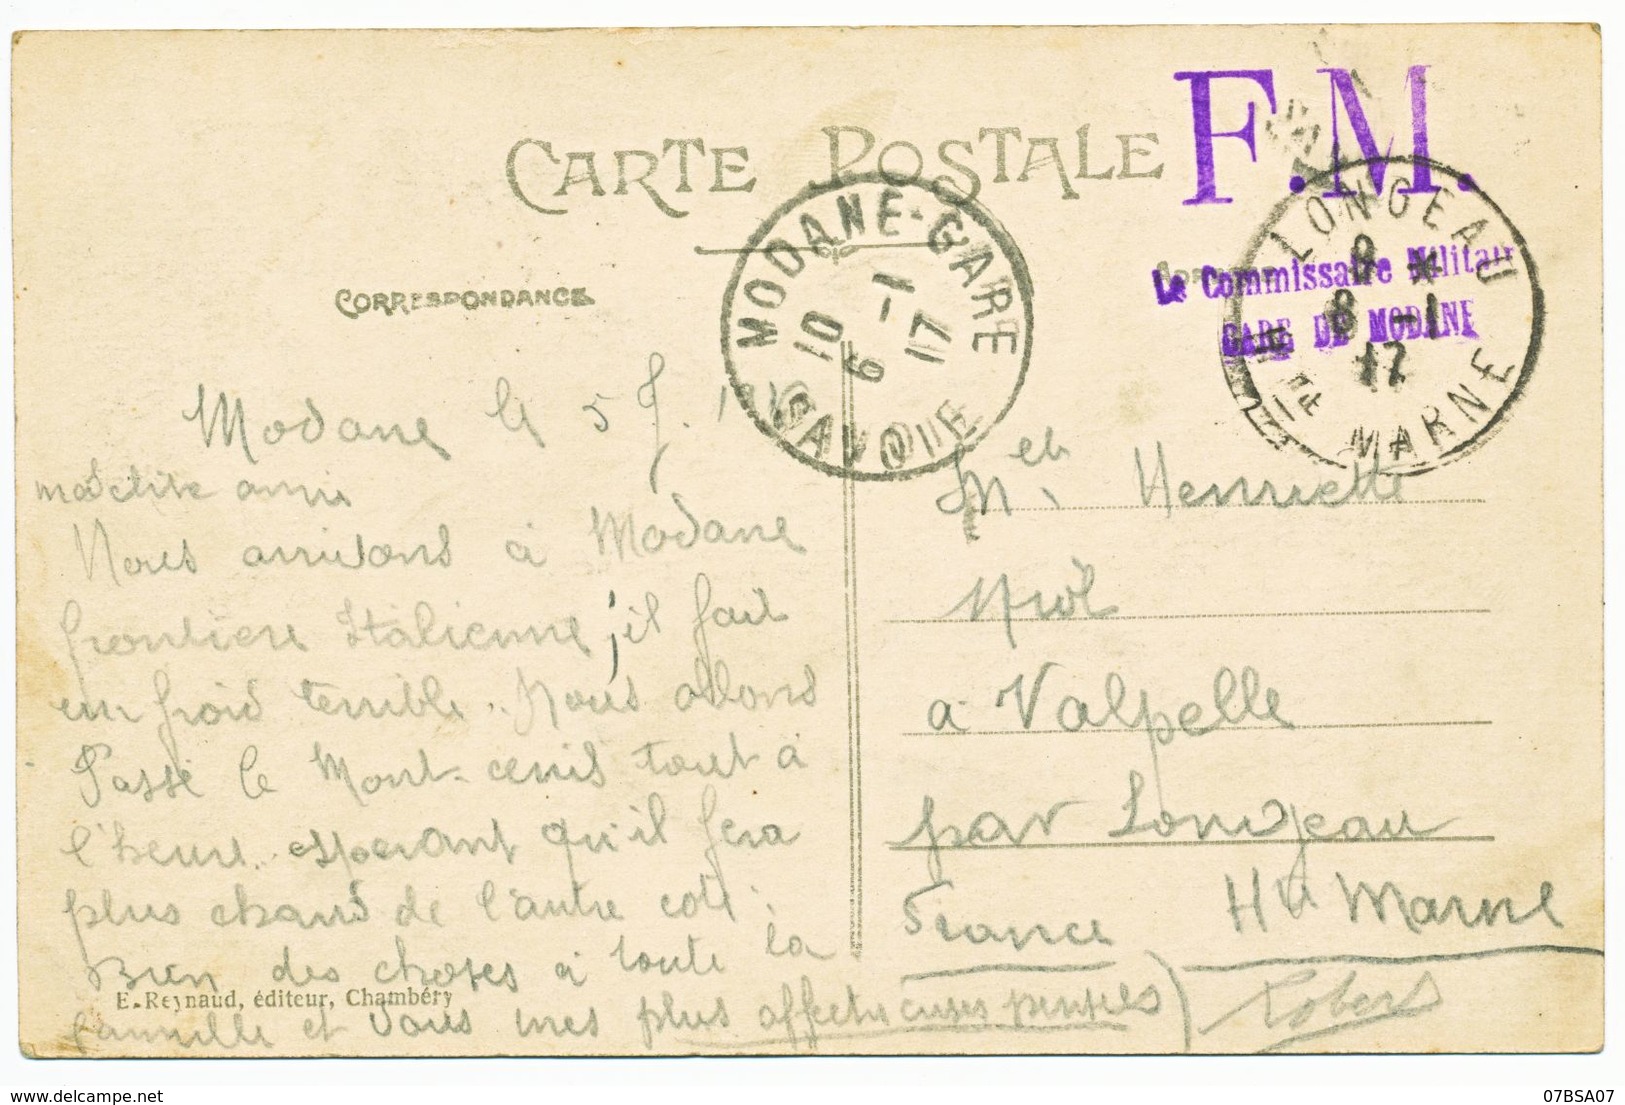 F.M.
CARTE POSTALE
CORRESPONDANCE
MODANE-GARE
10
6 -1
17
SAVOIE
LONGEAU
8 *
8 -1
17
HTE MARNE
Le Commissaire Militair
GARE DE MODANE
Modane le 5 J.
ma petite amie
Nous arrivons à Modane
frontière Italienne ; il fait
un froid terrible.. Nous allons
Passé le Mont-cenis tout à
l'heure.. esperant qu'il fera
plus chaud de l'autre coté.
Bien des choses à toute la
famille et vous mes plus affectueuses pensées
Robert
Melle Henriette
à Valpelle
par Longeau
France Hte Marne
E. Reynaud, éditeur, Chambéry
07BSA07